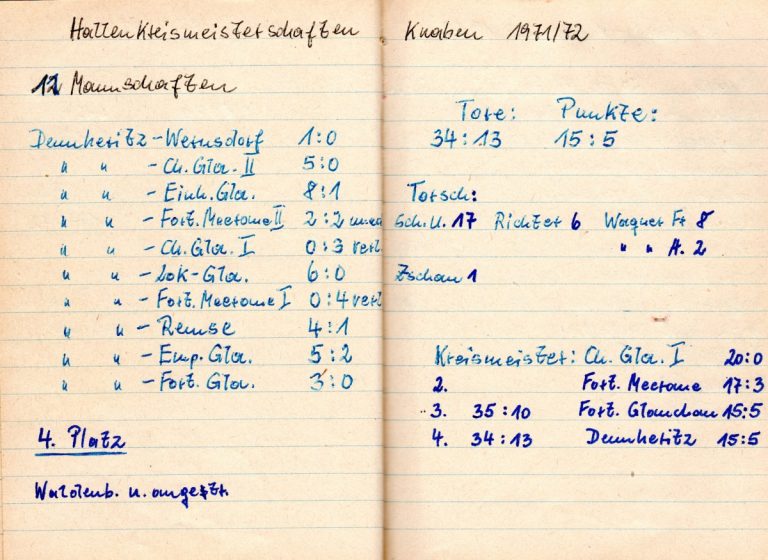 Hallenkreismeisterschaften Knaben 1971/72
12 Mannschaften
Dennheritz - Wernsdorf 1:0
" " - Ch. Gla. II 5:0
" " - Einh. Gla. 8:1
" " - Fort. Meerane II 2:2
" " - Ch. Gla. I 0:3 verl
" " - Lok-Gla. 6:0
" " - Fort. Meerane I 0:4 verl
" " - Remse 4:1
" " - Emp. Gla. 5:2
" " - Fort. Gla. 3:0
4. Platz
Waldenb. n. anget.
Tore: Punkte:
34:13 15:5
Torsch:
Sch. U. 17 Richter 6 Wagner Fr 8
" " A. 2
Zschau 1
Kreismeister: Ch. Gla. I 20:0
2. Fort. Meerane 17:3
3. 35:10 Fort. Glauchau 15:5
4. 34:13 Dennheritz 15:5